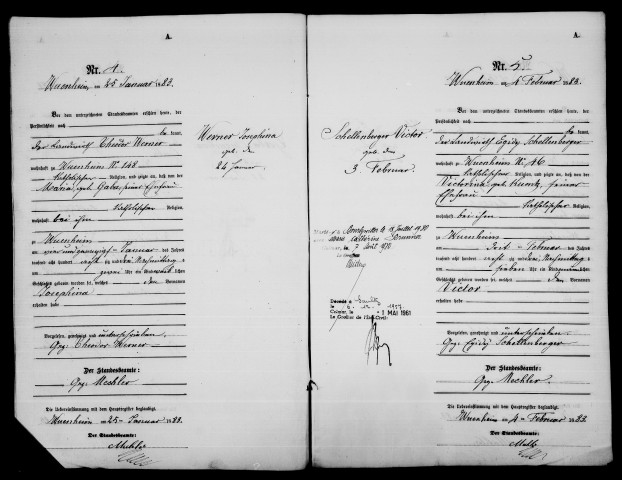 A.
Nr. 4.
Wuenheim am 25 Januar 1883.
Vor dem unterzeichneten Standesbeamten erschien heute, der
Persönlichkeit nach
be kannt,
der Landwirth Theodor Werner
wohnhaft zu Wuenheim Nr. 148
katholischer Religion, und zeigte an, daß von der
Maria geb. seiner Ehefrau
katholischer Religion,
wohnhaft bei ihm
zu Wuenheim
am vierundzwanzigsten Januar des Jahres
tausend acht hundert achtzig und drei Nachmittags
um zwei Uhr ein Kind weiblichen
Geschlechts geboren worden sei, welches den Vornamen
Josephina
erhalten habe.
Vorgelesen, genehmigt und unterschrieben
Gez. Theodor Werner
Der Standesbeamte:
Gez. Mechler
Die Uebereinstimmung mit dem Hauptregister beglaubigt.
Wuenheim am 25 Januar 1883.
Der Standesbeamte:
Werner Josephina
geb. den
24 Januar
A.
Nr. 5.
Wuenheim am 4 Februar 1883.
Vor dem unterzeichneten Standesbeamten erschien heute, der
Persönlichkeit nach
be kannt,
der Landwirth Egidy Schellenberger
wohnhaft zu Wuenheim Nr. 46
katholischer Religion, und zeigte an, daß von der
Victorina geb. Kuntz, seiner
Ehefrau katholischer Religion,
wohnhaft bei ihm
zu Wuenheim
am drit Februar des Jahres
tausend acht hundert achtzig und drei Nachmittags
um sieben Uhr ein Kind männlichen
Geschlechts geboren worden sei, welches den Vornamen
Victor
erhalten habe.
Vorgelesen, genehmigt und unterschrieben
Gez. Egidy Schellenberger
Der Standesbeamte:
Gez. Mechler.
Die Uebereinstimmung mit dem Hauptregister beglaubigt.
Wuenheim am 4 Februar 1883.
Der Standesbeamte:
Schellenberger Victor
geb. den
3. Februar.
Décédé à
le 1957
Colmar, le - 1 MAI 1961
Le Greffier de l'Etat Civil: